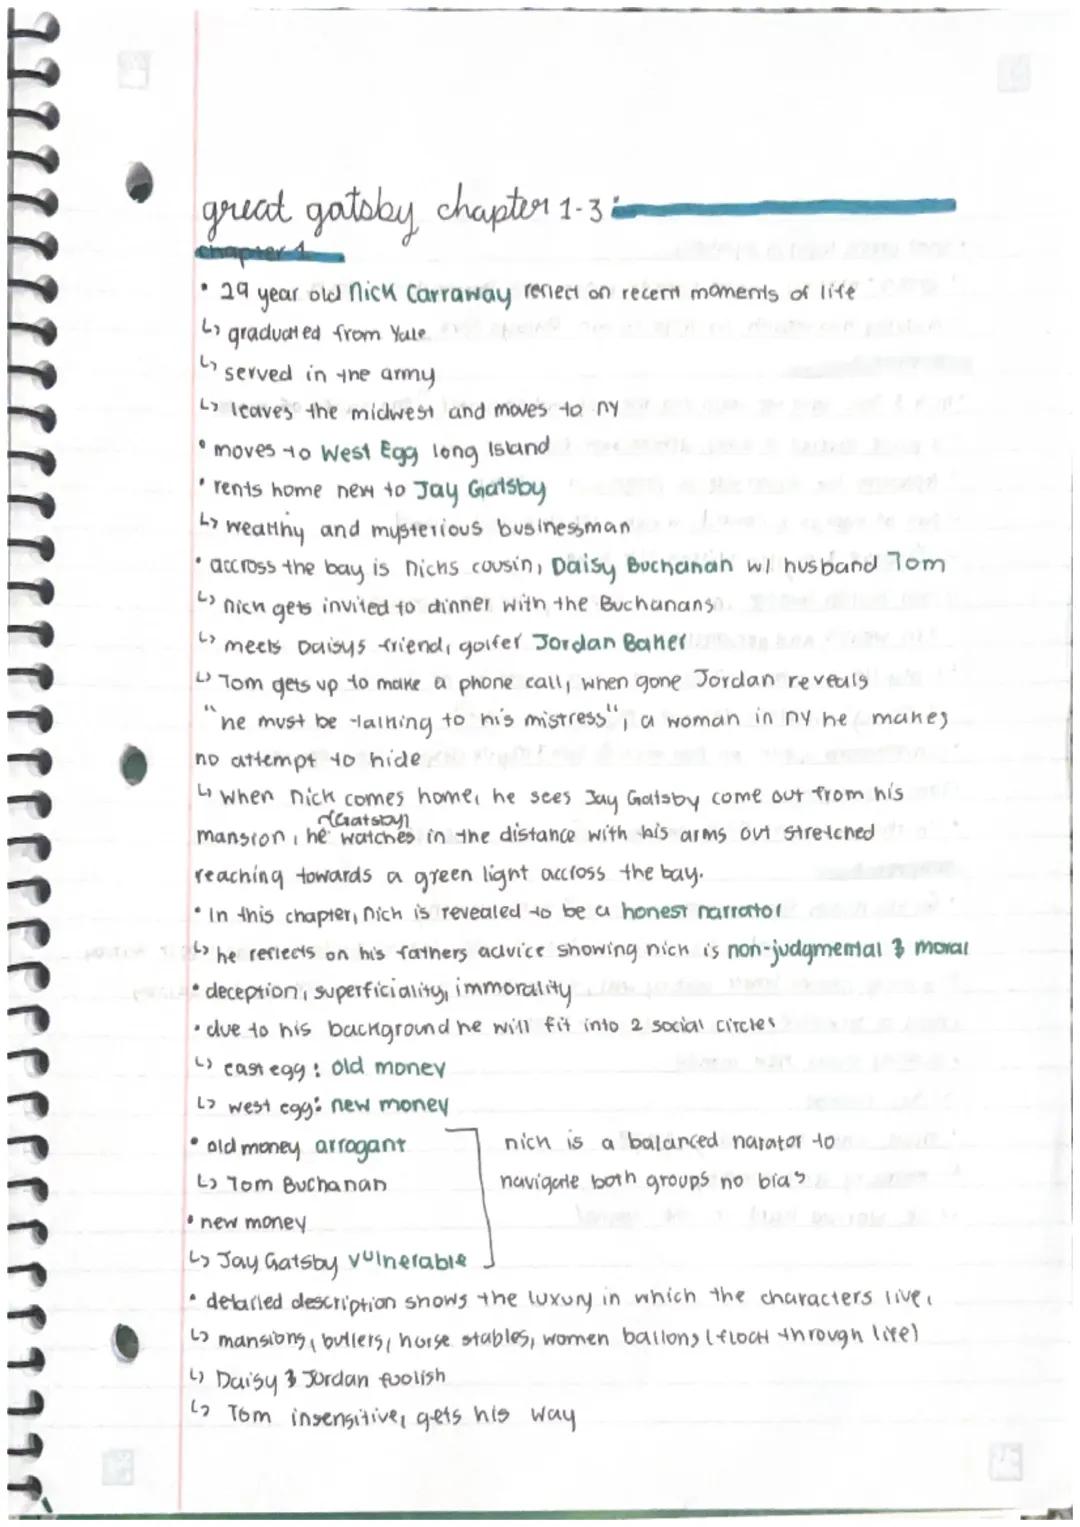 great gatsby chapter 1-3:
chapter 1
• 29 year old Nick Carraway reflect on recent moments of life
↳ graduated from Yale
↳ served in the army
↳ leaves the midwest and moves to ny
• moves to West Egg long Island
• rents home next to Jay Gatsby
↳ wealthy and mysterious businessman
• accross the bay is nicks cousin, Daisy Buchanan w/ husband Tom
↳ nick gets invited to dinner with the Buchanans
↳ meets Daisys friend, golfer Jordan Baker
↳ Tom gets up to make a phone call, when gone Jordan reveals
"he must be talking to his mistress", a woman in ny he makes
no attempt to hide
↳ when nick comes home, he sees Jay Gatsby come out from his
(Gatsby)
mansion, he watches in the distance with his arms out stretched
reaching towards a green light accross the bay.
• In this chapter, nick is revealed to be a honest narrator
↳ he reflects on his fathers advice showing nick is non-judgmental & moral
• deception, superficiality, immorality
• due to his background he will fit into 2 social circles
↳ east egg: old money
↳ west egg: new money
• old money arrogant
↳ Tom Buchanan
• new money
↳ Jay Gatsby vulnerable
nick is a balanced narator to
navigate both groups no bias
• detailed description shows the luxury in which the characters live,
↳ mansions, butlers, horse stables, women ballons (float through life)
↳ Daisy & Jordan foolish
↳ Tom insensitive, gets his way